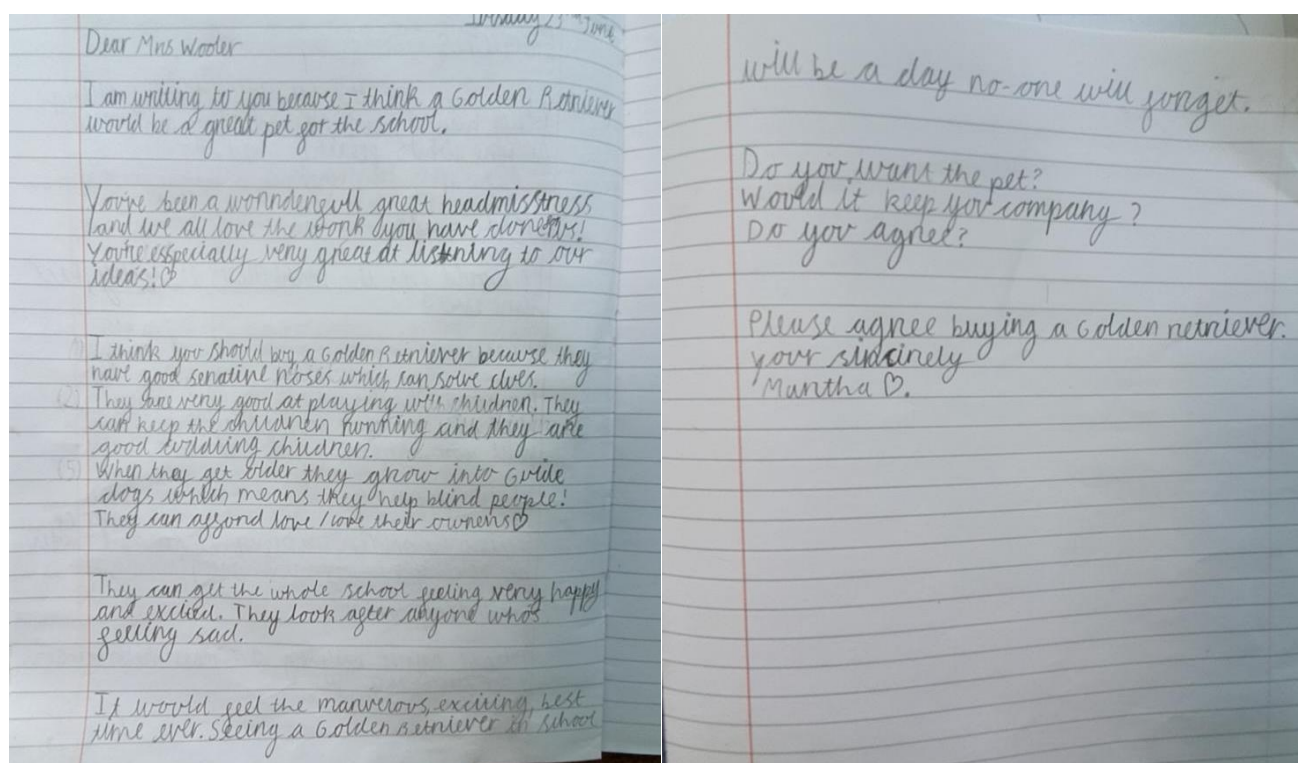 Tuesday 23rd June
Dear Mrs Wooler
I am writing to you because I think a Golden Retriever
would be a great pet got the school.
You've been a wonndengull great headmisstress
and we all love the work you have done
You're esspecially very great at listning to our
ideas!♡
I think you should buy a Golden Retriever because they
have good senative noses which can solve clues.
(2) They are very good at playing with children. They
can keep the children running and they are
good children.
When they get older they grow into Guide
dogs which means they help blind people!
They can afford love / love their owners♡
They can get the whole school feeling very happy
and excited. They look after anyone who's
feeling sad.
It would feel the marverous, exciting, best
time ever. Seeing a Golden Retriever in school
will be a day no-one will forget.
Do you want the pet?
Would it keep you company?
Do you agree?
Please agree buying a Golden retriever.
your sincinely
Martha ♡.